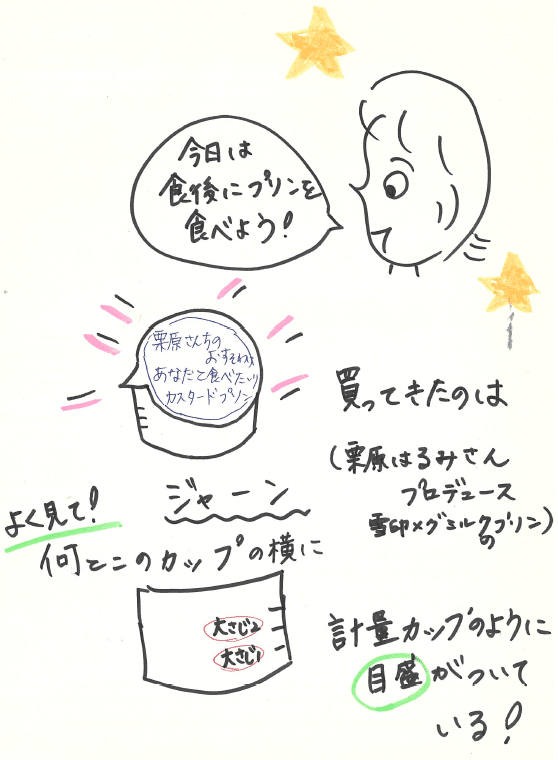 今日は
食後にプリンを
食べよう!
栗原さんちの
おすそわけ
あなたと食べたい
カスタードプリン
買ってきたのは
(栗原はるみさん
プロデュース
雪印メグミルクのプリン)
ジャーン
よく見て!
何とこのカップの横に
大さじ2
大さじ1
計量カップのように
目盛がついて
いる!